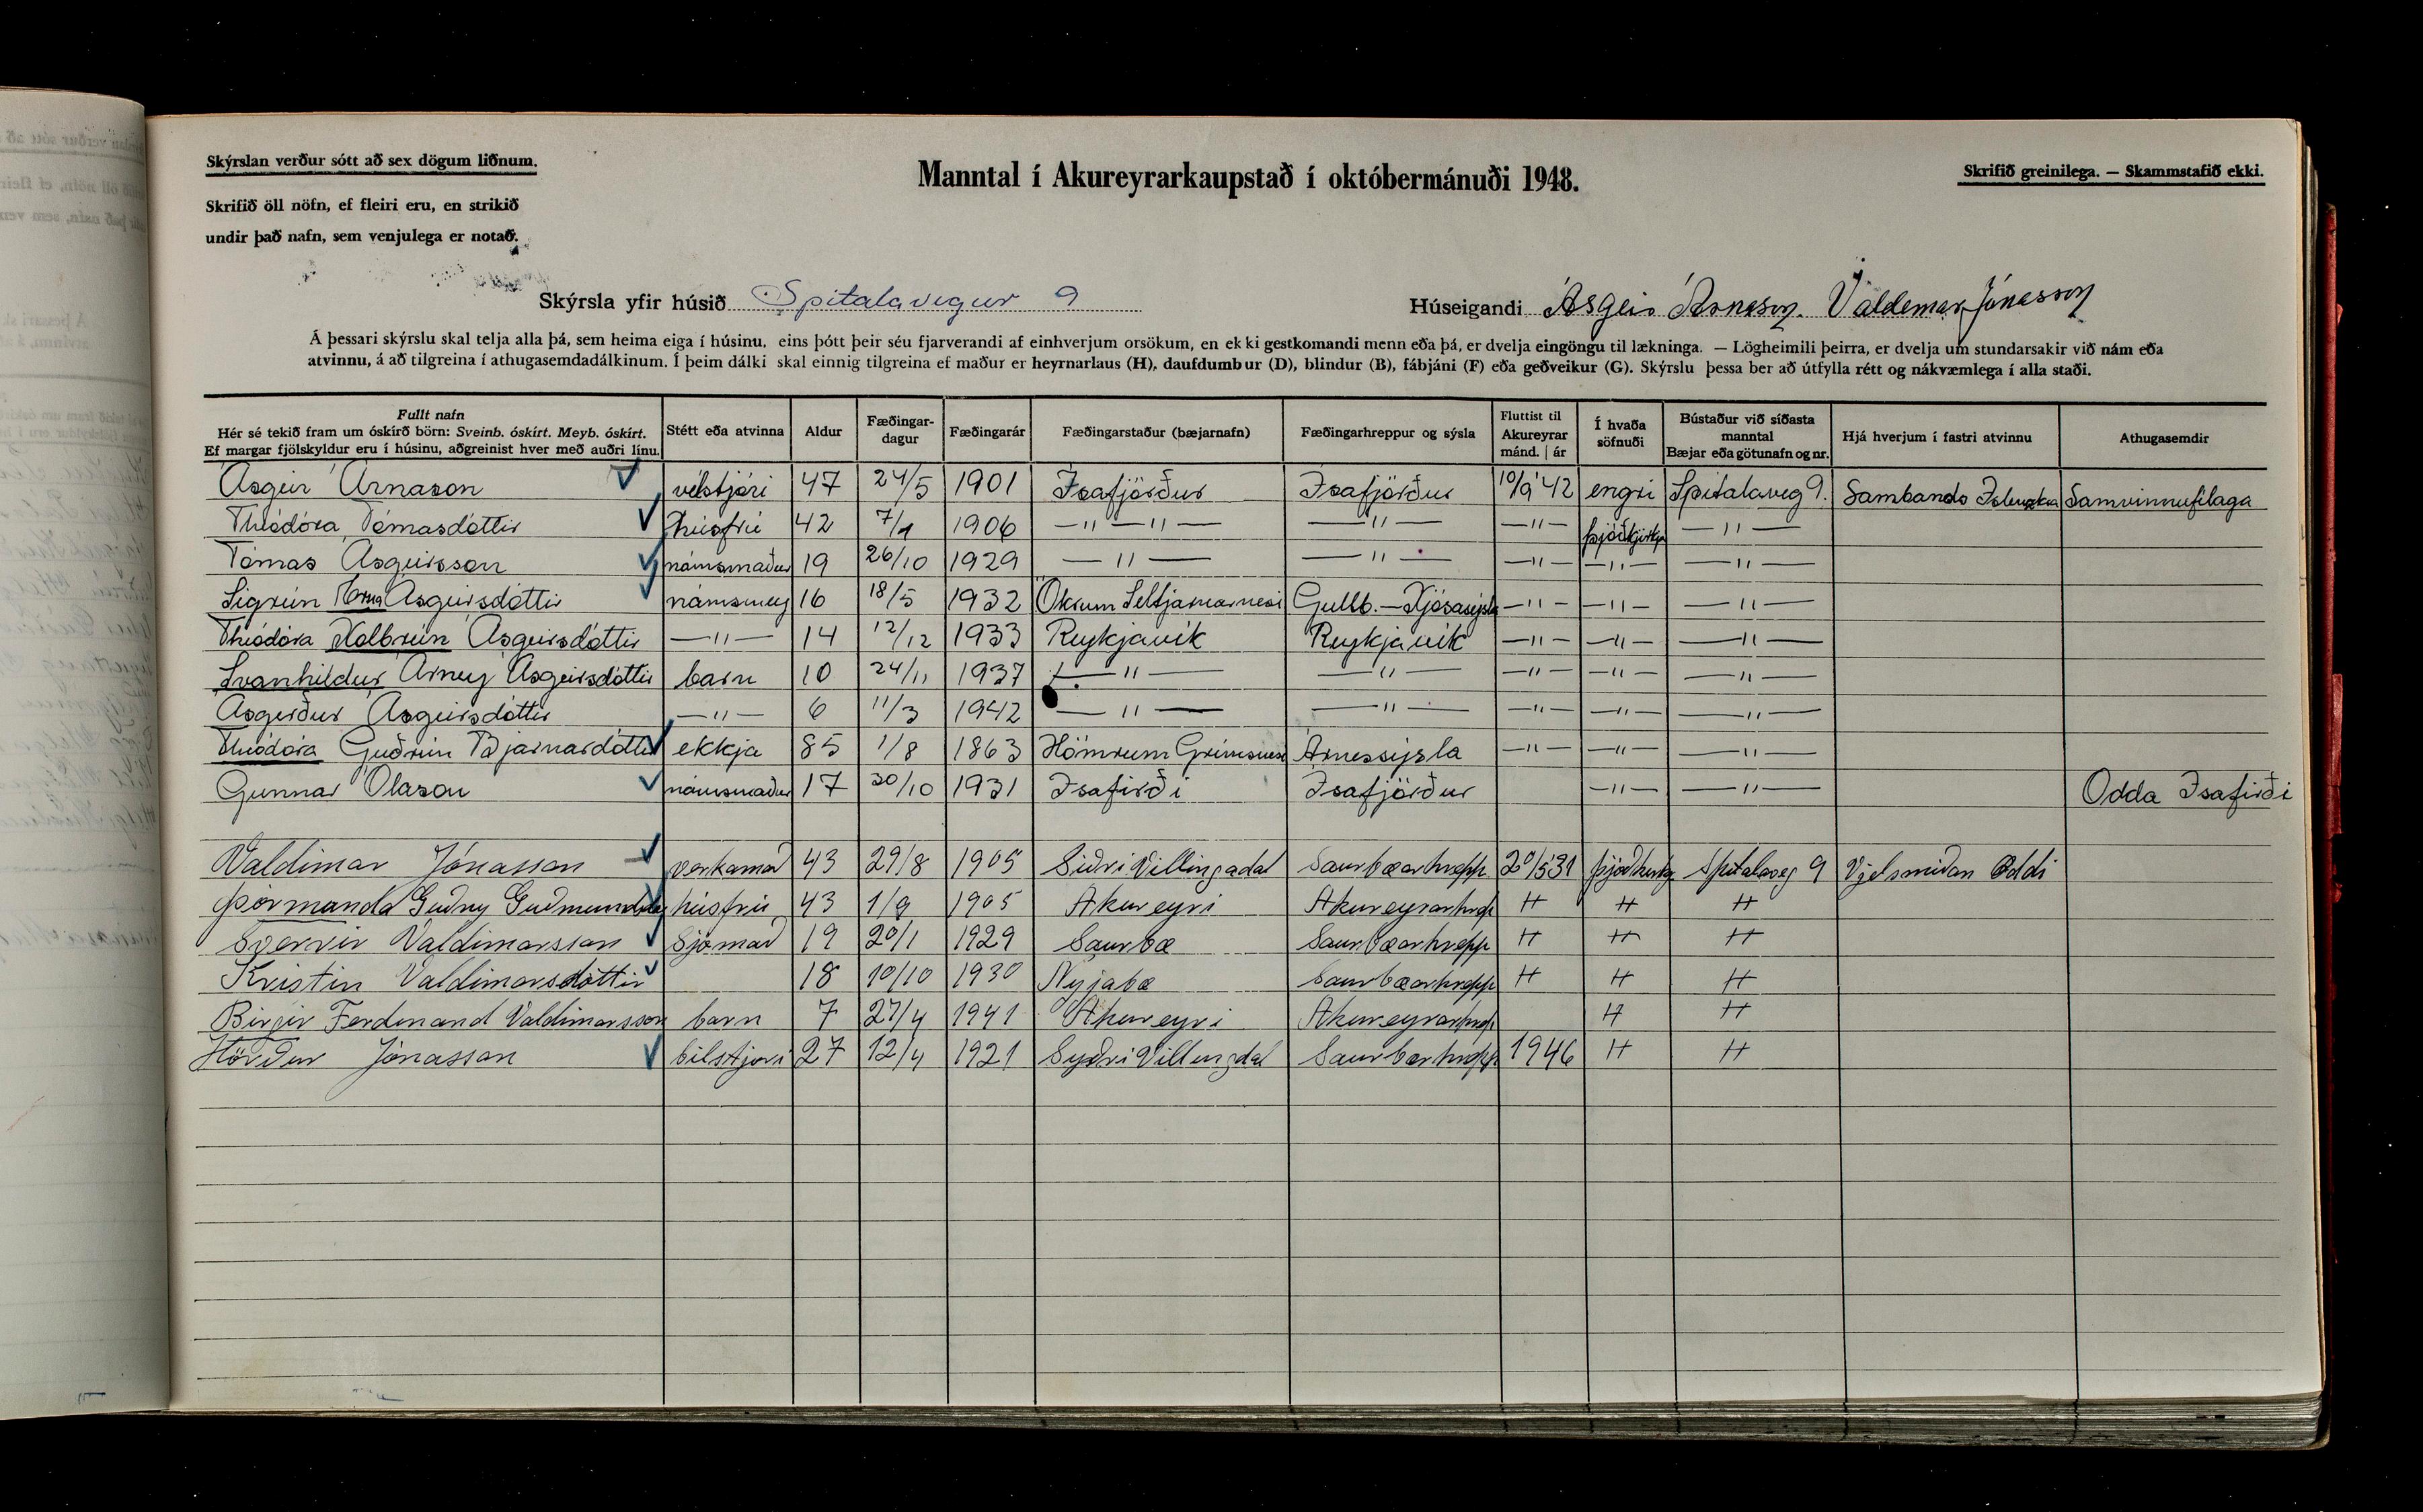 Skýrslan verður sótt að sex dögum liðnum.
Skrifið öll nöfn, ef fleiri eru, en strikið
undir það nafn, sem venjulega er notað.
Manntal í Akureyrarkaupstað í októbermánuði 1948.
Skrifið greinilega. — Skammstafið ekki.
Skýrsla yfir húsið Spítalavegur 9
Húseigandi Ásgeir Árnason. Valdemar Jónasson
Á þessari skýrslu skal telja alla þá, sem heima eiga í húsinu, eins þótt þeir séu fjarverandi af einhverjum orsökum, en ekki gestkomandi menn eða þá, er dvelja eingöngu til lækninga. — Lögheimili þeirra, er dvelja um stundarsakir við nám eða
atvinnu, á að tilgreina í athugasemdadálkinum. Í þeim dálki skal einnig tilgreina ef maður er heyrnarlaus (H), daufdumbur (D), blindur (B), fábjáni (F) eða geðveikur (G). Skýrslu þessa ber að útfylla rétt og nákvæmlega í alla staði.
Fullt nafn
Hér sé tekið fram um óskírð börn: Sveinb. óskírt. Meyb. óskírt.
Ef margar fjölskyldur eru í húsinu, aðgreinist hver með auðri línu.
Stétt eða atvinna
Aldur
Fæðingar-
dagur
Fæðingarár
Fæðingarstaður (bæjarnafn)
Fæðingarhreppur og sýsla
Fluttist til
Akureyrar
mánd. | ár
Í hvaða
söfnuði
Bústaður við síðasta
manntal
Bæjar eða götunafn og nr.
Hjá hverjum í fastri atvinnu
Athugasemdir
Ásgeir Árnason vélstjóri 47 24/5 1901 Ísafjörður Ísafjörður 10/9 '42 engri Spítalaveg 9. Sambands Íslenzkra Samvinnufélaga
Theódóra Tómasdóttir húsfrú 42 7/1 1906 —"—"— —"— —"— þjóðkirkju —"—
Tómas Ásgeirsson námsmaður 19 26/10 1929 —"— —"— —"— —"— —"—
Sigrún Erna Ásgeirsdóttir námsmey 16 18/5 1932 Ökrum Seltjarnarnesi Gullb.-Kjósasýsla —"— —"— —"—
Theódóra Kolbrún Ásgeirsdóttir —"— 14 12/12 1933 Reykjavík Reykjavík —"— —"— —"—
Svanhildur Árney Ásgeirsdóttir barn 10 24/11 1937 —"— —"— —"— —"— —"—
Ásgerður Ásgeirsdóttir —"— 6 11/3 1942 —"— —"— —"— —"— —"—
Theódóra Guðrún Bjarnardóttir ekkja 85 1/8 1863 Hömrum Grímsnesi Árnessýsla —"— —"— —"—
Gunnar Ólason námsmaður 17 30/10 1931 Ísafirði Ísafjörður —"— —"— Odda Ísafirði
Valdimar Jónasson verkamað 43 29/8 1905 Siðri Villingadal Saurbæarhrepp 20/5 31 þjóðkirkj Spítalaveg 9 Vjelsmiðan Oddi
Þórmunda Guðny Guðmundsdóttir húsfrú 43 1/9 1905 Akureyri Akureyrarhrep " " "
Sverrir Valdimarsson Sjómað 19 20/1 1929 Saurbæ Saurbæarhrepp " " "
Kristin Valdimarsdóttir 18 10/10 1930 Nyjabæ Saurbæarhrepp " " "
Birgir Ferdinand Valdimarsson barn 7 27/4 1941 Akureyri Akureyrarhrep " "
Hörður Jónasson bílstjori 27 12/4 1921 Syðri Villingdal Saurbærhrepp 1946 " "